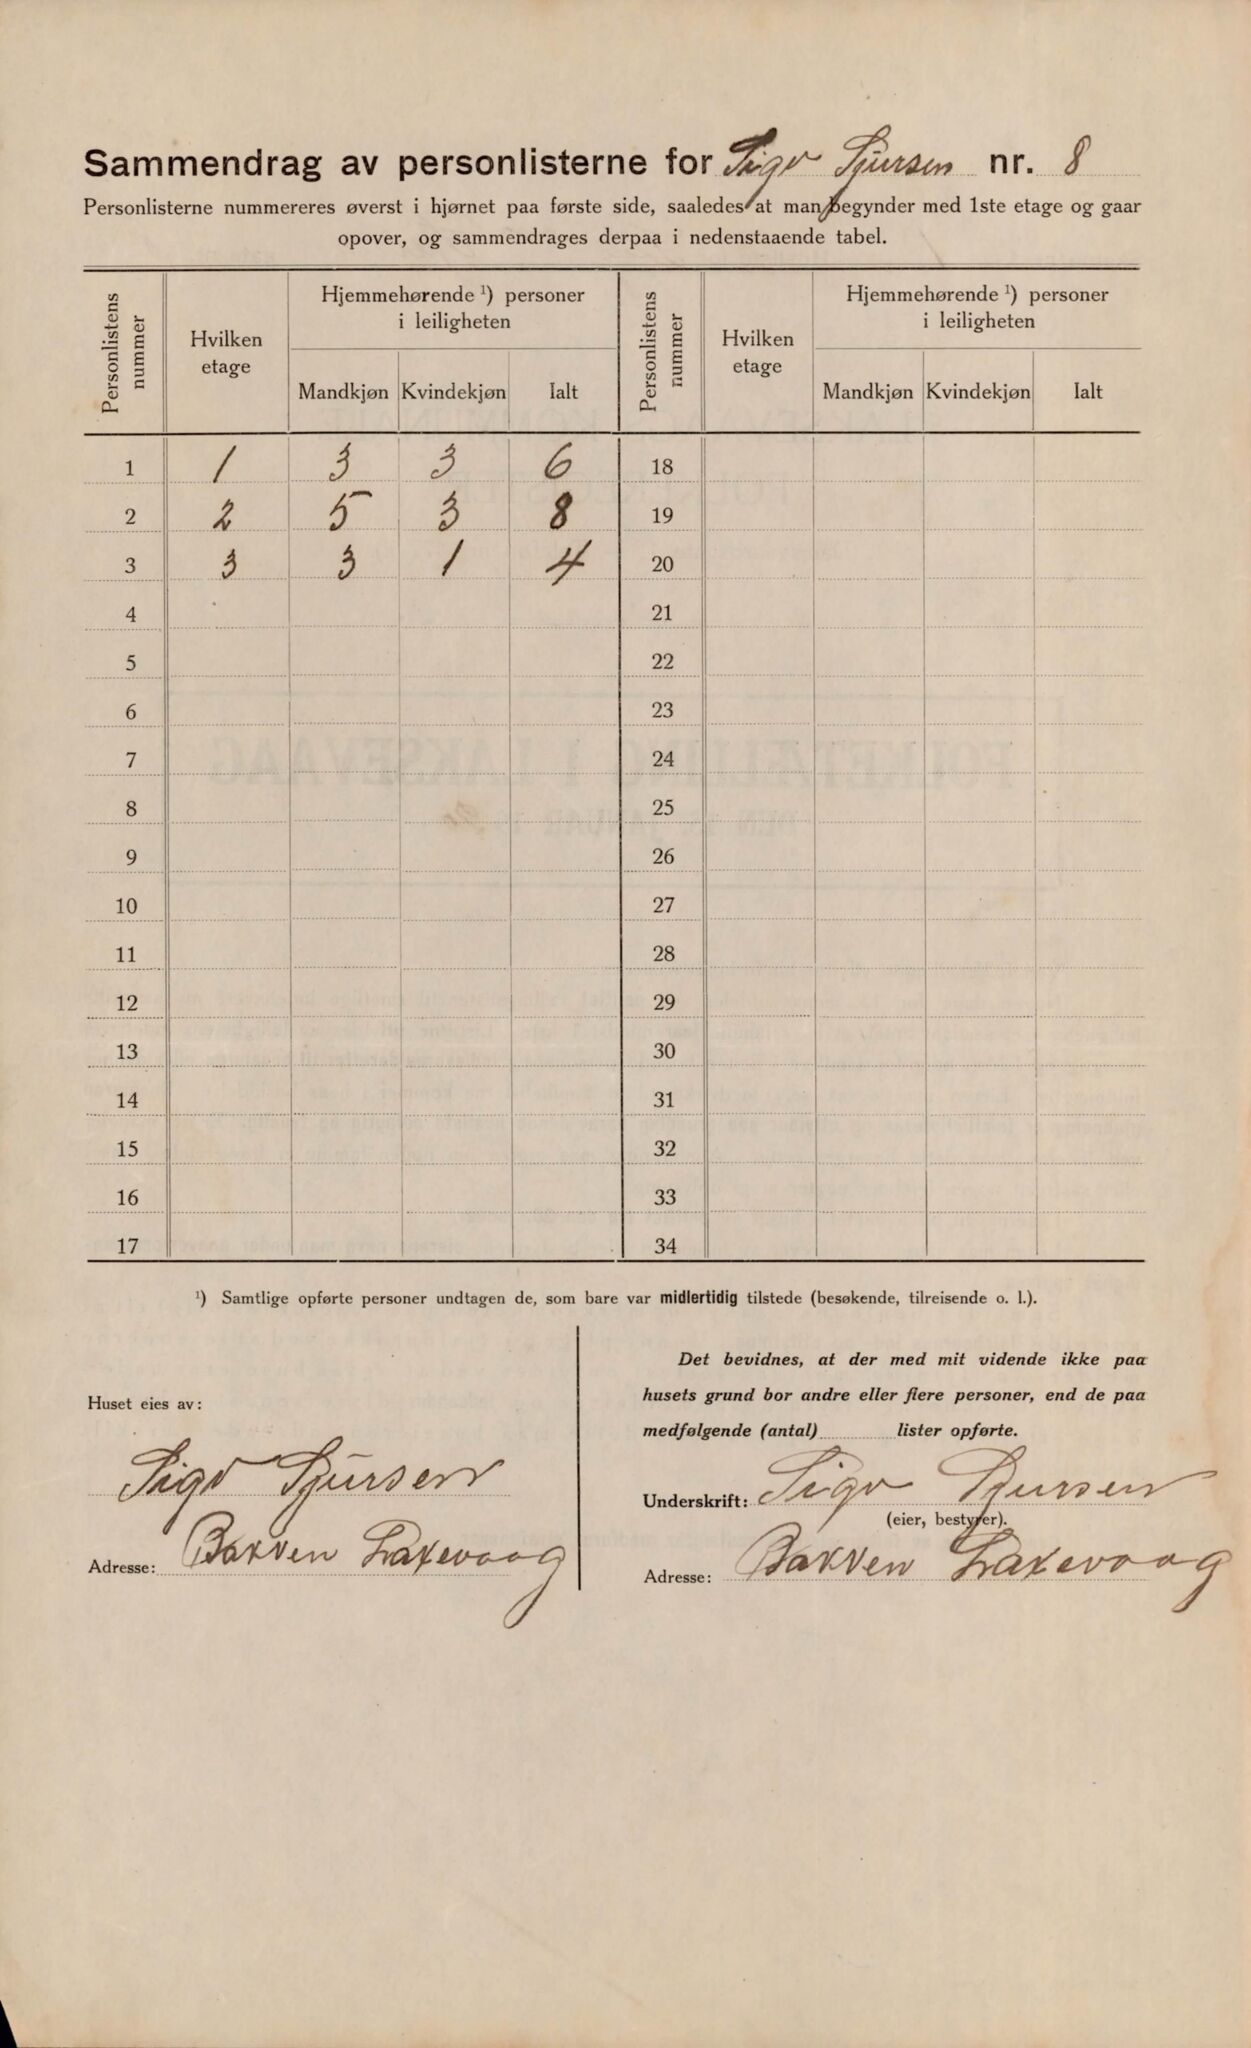 Sammendrag av personlisterne for Sigv Sjursen nr. 8
Personlisterne nummereres øverst i hjørnet paa første side, saaledes at man begynder med 1ste etage og gaar
opover, og sammendrages derpaa i nedenstaaende tabel.
Personlistens nummer
Hvilken etage
Hjemmehørende ¹) personer i leiligheten
Mandkjøn Kvindekjøn Ialt
Personlistens nummer
Hvilken etage
Hjemmehørende ¹) personer i leiligheten
Mandkjøn Kvindekjøn Ialt
1 1 3 3 6 18
2 2 5 3 8 19
3 3 3 1 4 20
4 21
5 22
6 23
7 24
8 25
9 26
10 27
11 28
12 29
13 30
14 31
15 32
16 33
17 34
¹) Samtlige opførte personer undtagen de, som bare var midlertidig tilstede (besøkende, tilreisende o. l.).
Huset eies av:
Sigv Sjursen
Adresse: Bakken Laxevaag
Det bevidnes, at der med mit vidende ikke paa
husets grund bor andre eller flere personer, end de paa
medfølgende (antal) lister opførte.
Underskrift: Sigv Sjursen
(eier, bestyrer).
Adresse: Bakken Laxevaag